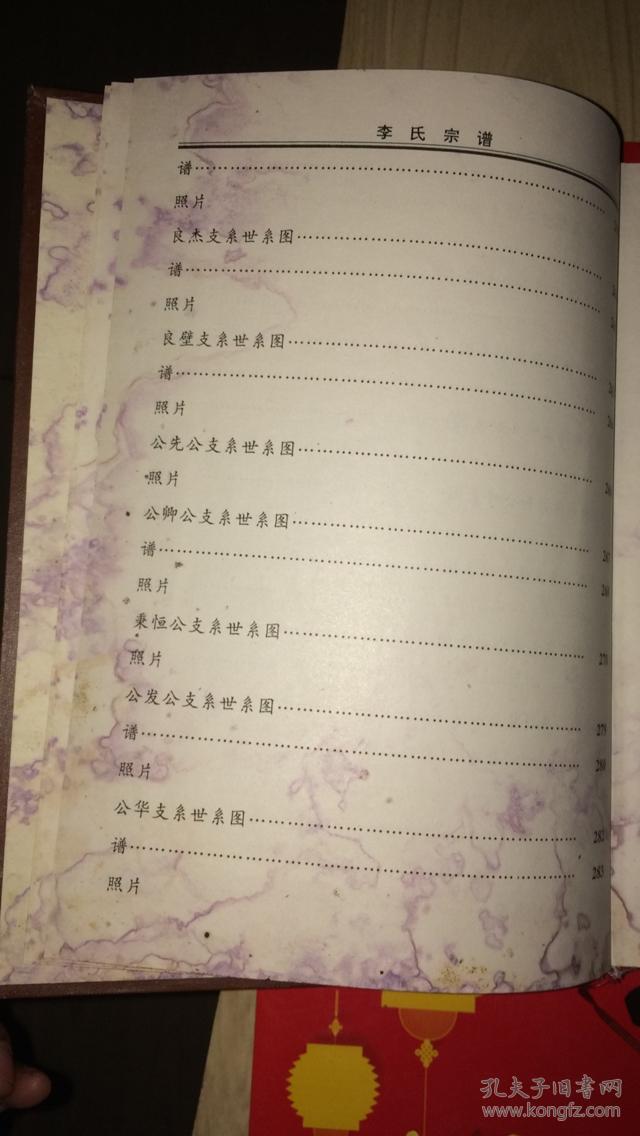 李氏宗谱
谱……………………………………
照片
良杰支系世系图……………………………………
谱……………………………………
照片
良壁支系世系图……………………………………
谱……………………………………
照片
公先公支系世系图……………………………………
照片
公卿公支系世系图……………………………………267
谱……………………………………
照片
秉恒公支系世系图……………………………………
照片
公发公支系世系图……………………………………279
谱……………………………………280
照片
公华支系世系图……………………………………282
谱……………………………………283
照片
孔夫子旧书网
www.kongfz.com